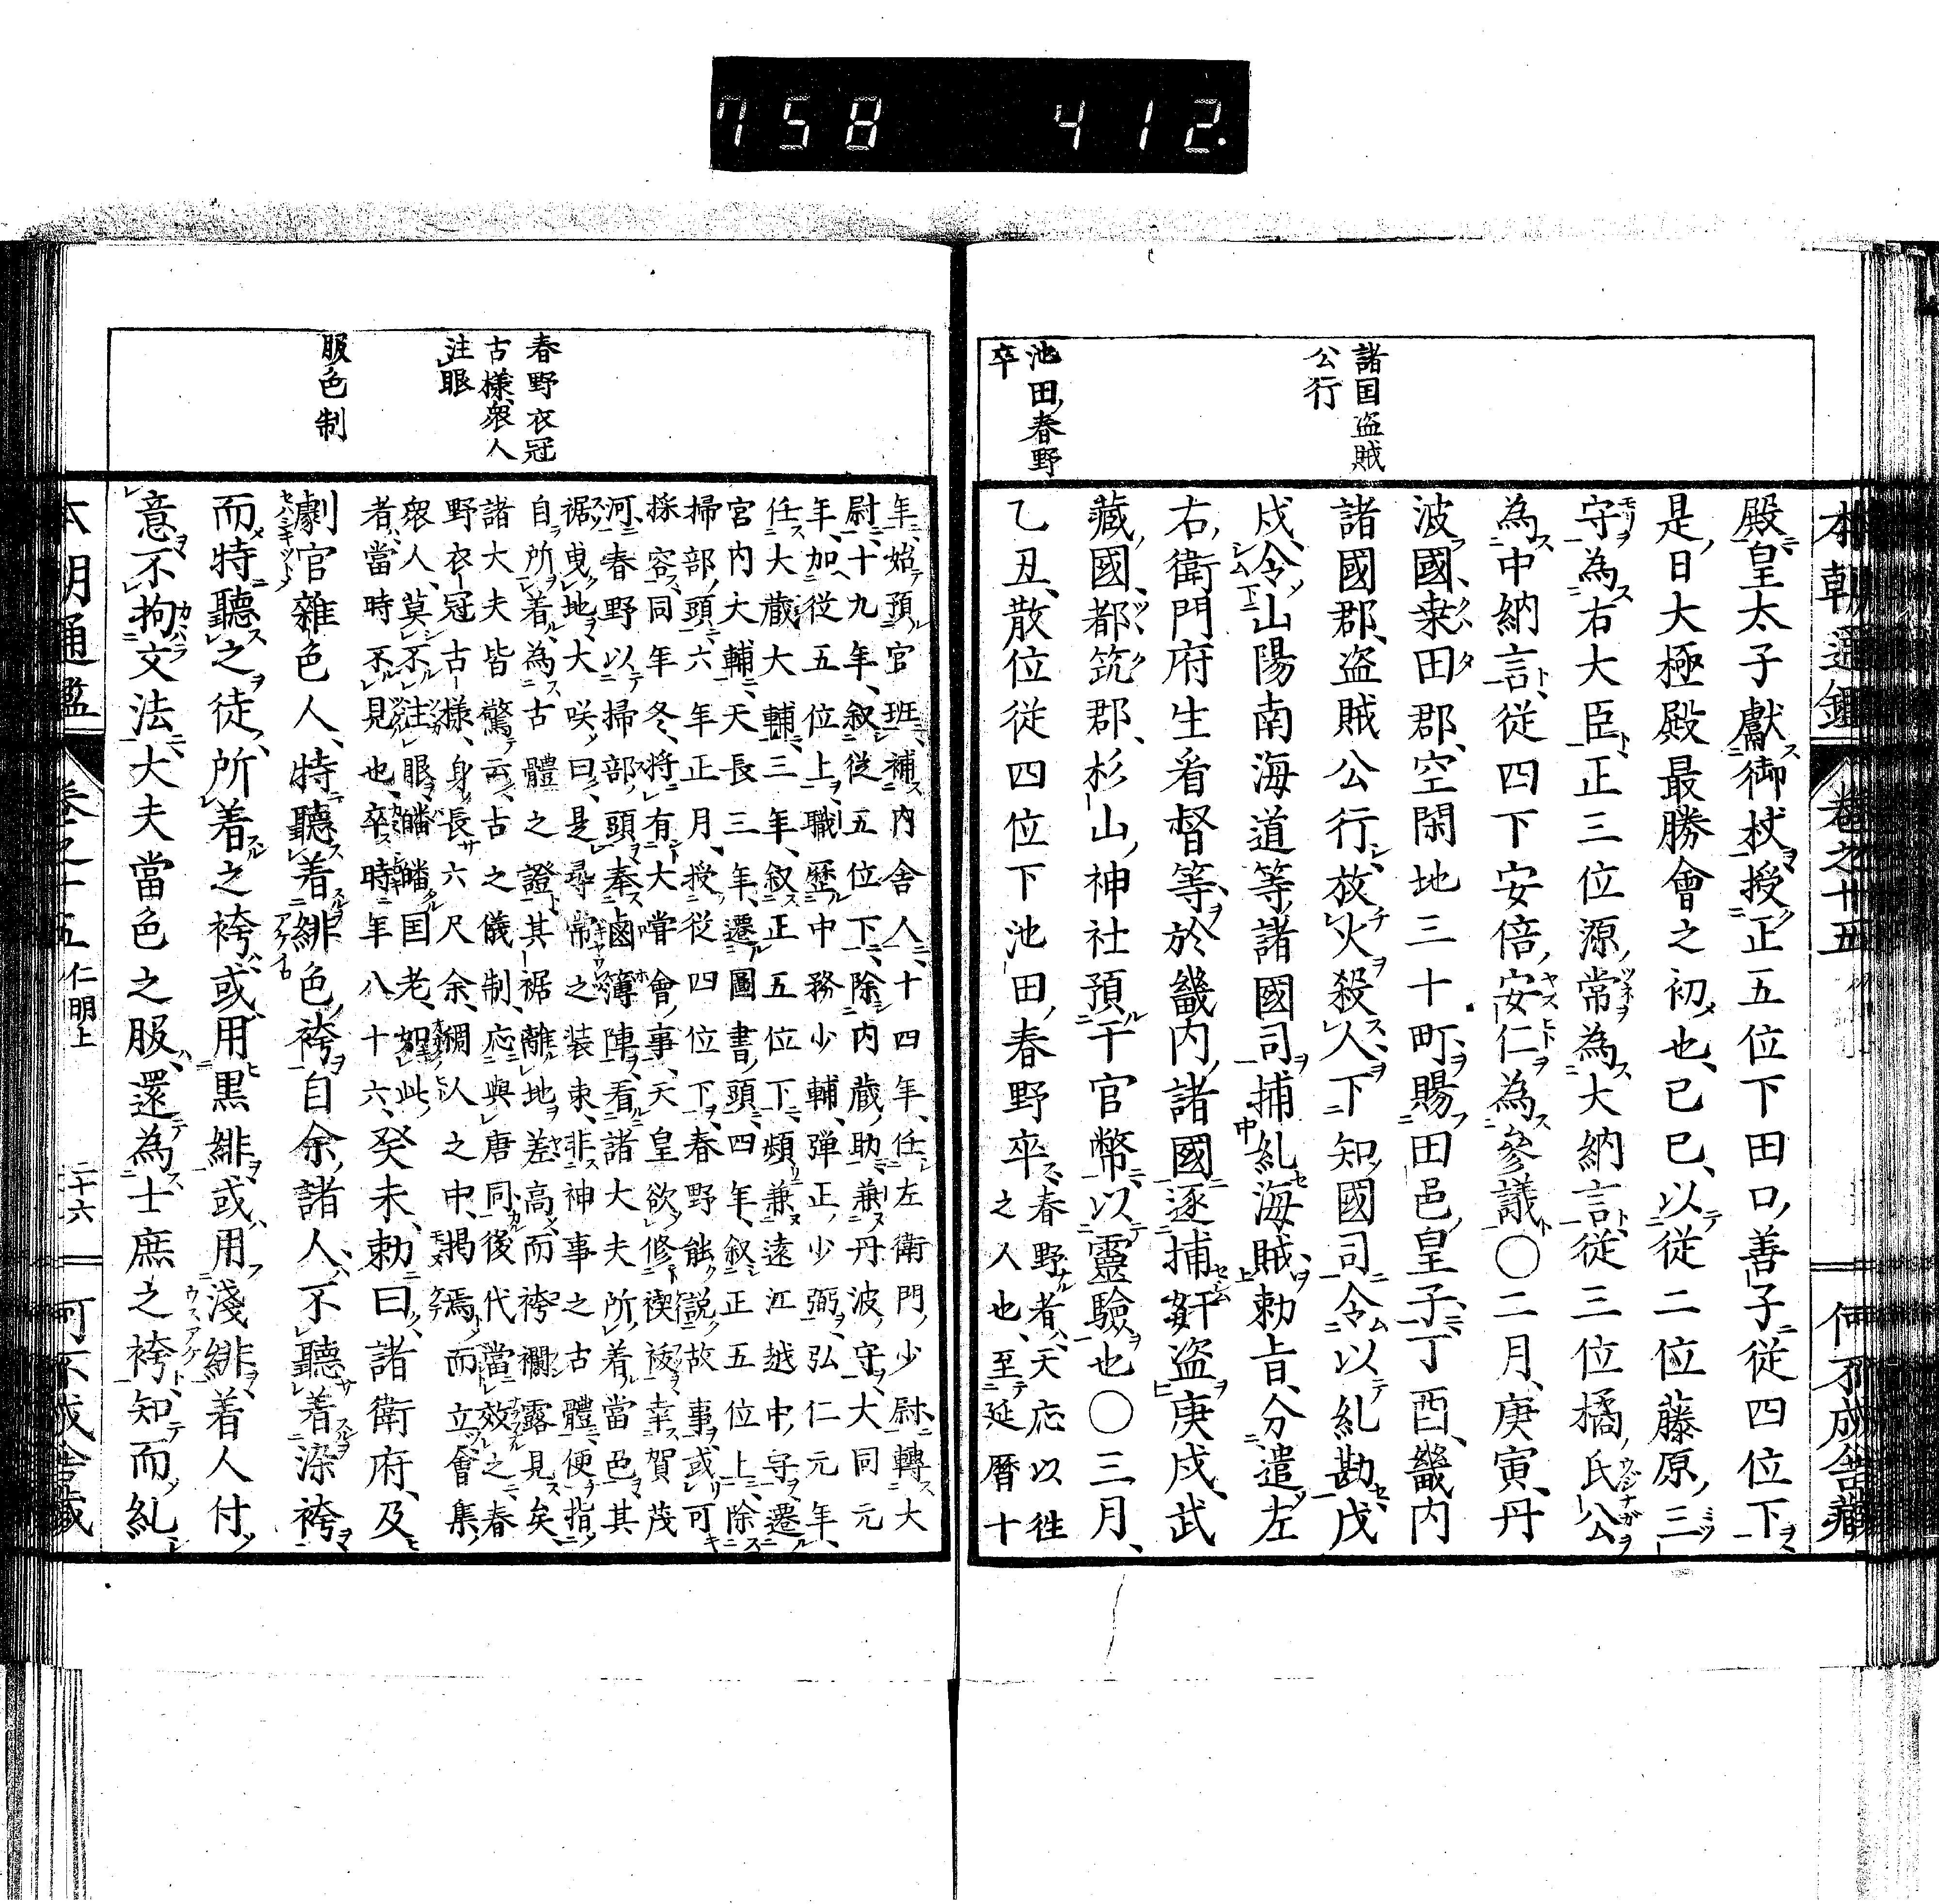 758 412.
本朝通鑑 卷之十五
諸国盗賊
公行
池田春野
卒
殿皇太子獻御杖授正五位下田口善子從四位下
是日大極殿最勝會之初也己巳以從二位藤原三
守為右大臣正三位源常為大納言從三位橘氏公
為中納言從四下安倍安仁為參議〇二月庚寅丹
波國桒田郡空閑地三十町賜田邑皇子丁酉畿内
諸國郡盗賊公行放火殺人下知國司令以糺勘戊
戌令山陽南海道等諸國司捕糺海賊勅旨分遣左
右衛門府生看督等於畿内諸國逐捕奸盗庚戌武
藏國都筑郡杉山神社預干官幣以靈驗也〇三月
乙丑散位從四位下池田春野卒
春野者天応以徃
之人也至延暦十
春野衣冠
古樣衆人
注眼
服色制
年始預官班補内舎人十四年任左衛門少尉轉大
尉十九年叙從五位下除内藏助兼丹波守大同元
年加從五位上職歴中務少輔弾正少弼弘仁元年
任大藏大輔三年叙正五位下頻兼遠江越中守遷
宮内大輔天長三年遷圖書頭四年叙正五位上除
掃部頭六年正月授從四位下春野能説故事或可
採容同年冬將有大嘗會事天皇欲修禊祓幸賀茂
河春野以掃部頭奉鹵簿陣看諸大夫所着當色其
裾曳地大咲曰是尋常之装束非神事之古體便指
自所着為古體之證其裾離地差高而袴襴露見矣
諸大夫皆驚云古之儀制応與唐同後代當效之春
野衣冠古樣身長六尺余稠人之中掲焉而立會集
衆人莫不注眼皤皤国老如此
者當時不見也卒時年八十六癸未勅曰諸衛府及
劇官雜色人特聽着緋色袴自余諸人不聽着深袴
而特聽之徒所着之袴或用黒緋或用淺緋着人付
意不拘文法大夫當色之服還為士庶之袴知而糺
仁明上 二十六